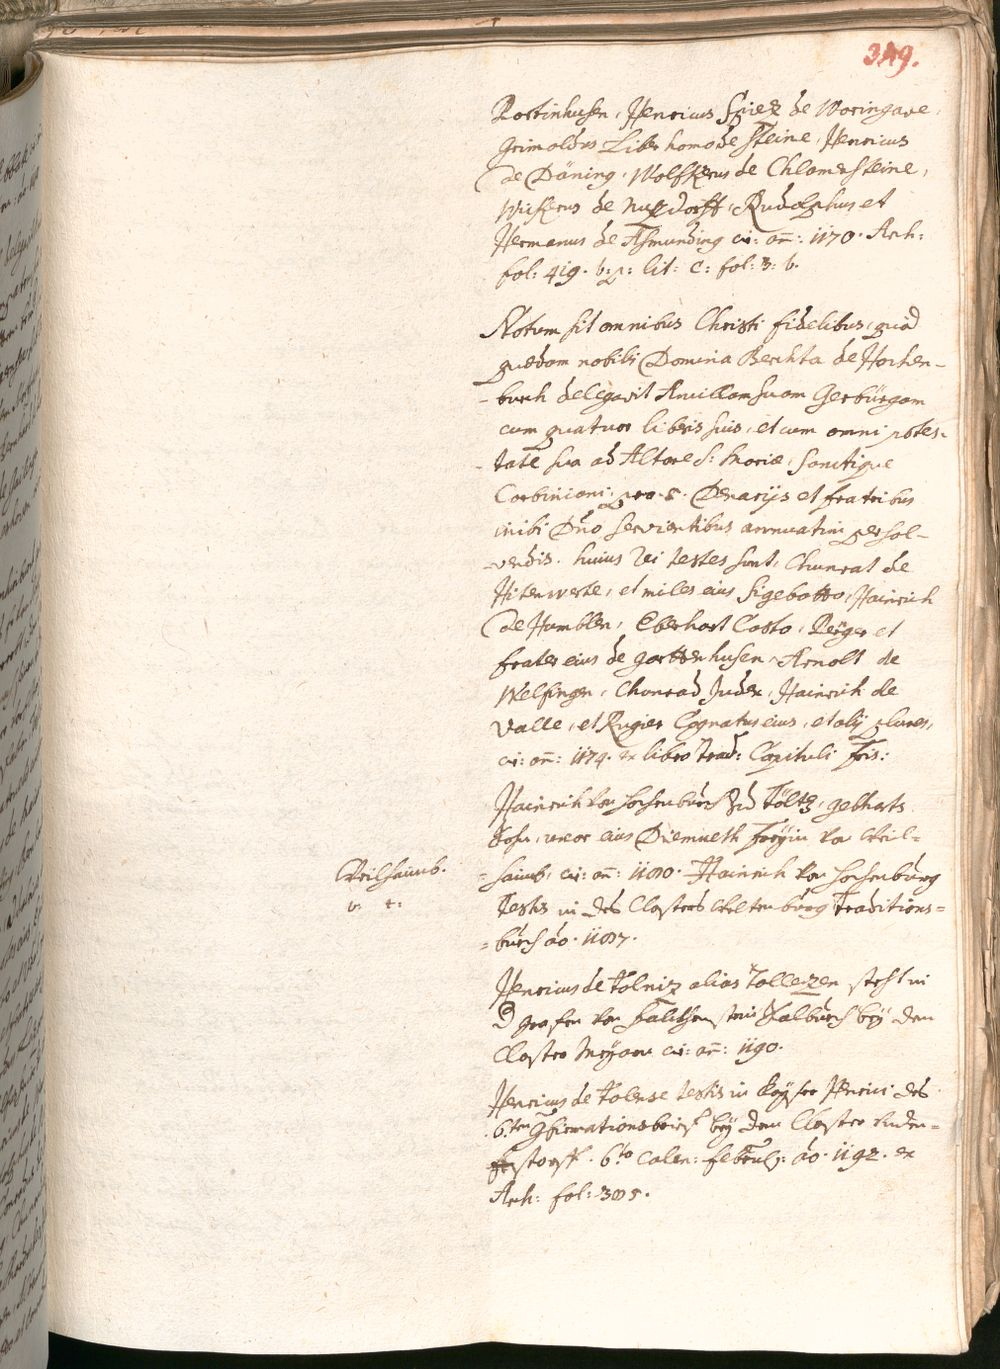 349.
Portinhusen, Henricus Spiez de Woringave,
Grimoldus Liber homo de Steine, Henricus
de Däning, Wolfkerus de Chlamensteine,
Wickerus de Nuzdorff, Rudolphus et
Hermanus de Asmunding ci: añ: 1170. Arh:
fol: 419. v. p: lit: C: fol: 3. v.
Notum sit omnibus Christi fidelibus, quod
quædam nobilis Domina Berchta de Hohen-
-burch delegavit Ancillam suam Gerbürgam
cum quatuor liberis suis, et cum omni potes-
-tate sua ad Altare S: Mariæ, Sanctique
Corbiniani, pro 5. Denarijs et fratribus
inibi Dño servientibus annuatim persol-
-vendis. huius rei testes sunt, Chunrat de
Hitenverte, et miles eius Sigebotto, Hainrich
de Humblen, Eberhart Casto, Perger et
frater eius de gartenhusen, Arnolt de
Welfingen, Chunrad Judex, Hainrich de
Valle, et Rugier Cognatus eius, et alij plures,
ci: añ: 1174. ex libro Trad: Capituli Fris:
Hainrich von Hochenburch Zu Töltz, gebharts
Sohn, uxor eius Diemueth Freyin von Weil-
-haimb, ci: añ: 1180. Hainrich von Hochenburg
Testis in des Closters Weltenburg Traditions=
=buech ao. 1187.
Weilhaimb.
v. t:
Henricus de Tolniz alias Tollezen steht in
D grafen von Falkhenstein Salbuech bey dem
Closter Weyarn ci: añ: 1190.
Henricus de Tolense testis in Kayser Henrici des
6.ten Confirmationsbrief bey dem Closter Under-
storff. 6.to Calen: Februarij: ao. 1192. ex
Arh: fol: 385.